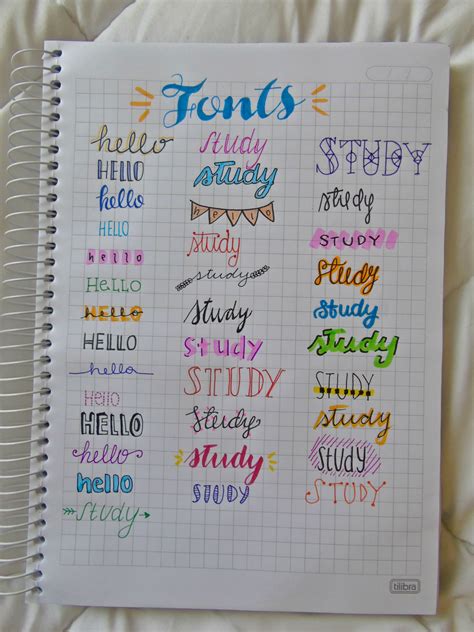 Fonts
hello
HELLO
hello
HELLO
hello
HeLLO
HELLO
HELLO
hello
hello
HELLO
hello
hello
study
study
study
hello
study
study
study
STUDY
STUDY
study
study
STUDY
STUDY
study
STUDY
study
study
study
STUDY
study
study
STUDY
tilibra